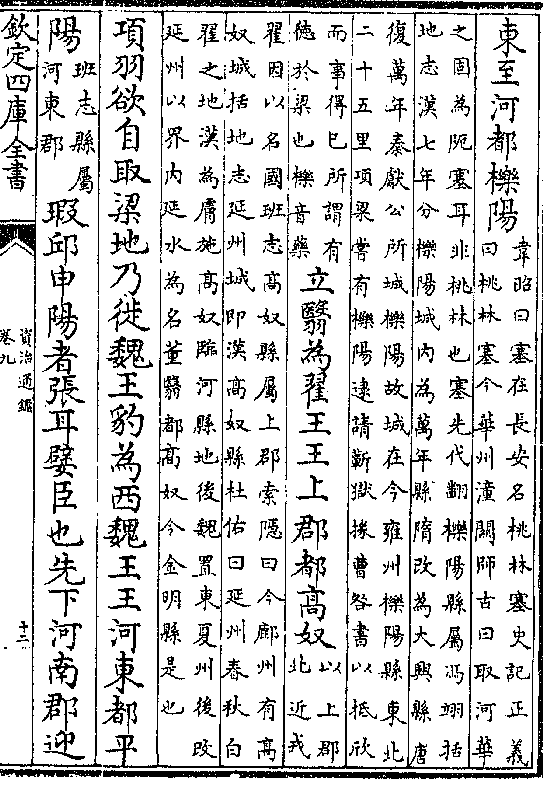 東至河都櫟陽
韋昭曰塞在長安名桃林塞史記正義
曰桃林塞今華州潼關師古曰取河華
之固為阨塞耳非桃林也塞先代翻櫟陽縣屬馮翊括
地志漢七年分櫟陽城內為萬年縣隋改為大興縣唐
復萬年秦獻公所城櫟陽故城在今雍州櫟陽縣東北
二十五里項梁嘗有櫟陽逮請蘄獄掾曹咎書以抵欣
而事得已所謂有
德於梁也櫟音藥
立翳為翟王王上郡都高奴
以上郡
北近戎
翟因以名國班志高奴縣屬上郡索隱曰今鄜州有高
奴城括地志延州城即漢高奴縣杜佑曰延州春秋白
翟之地漢為膚施高奴臨河縣地後魏置東夏州後改
延州以界內延水為名董翳郡高奴今金明縣是也
項羽欲自取梁地乃徙魏王豹為西魏王王河東都平
陽
班志縣屬
河東郡
瑕邱申陽者張耳嬖臣也先下河南郡迎
欽定四庫全書
資治通鑑
卷九
十三